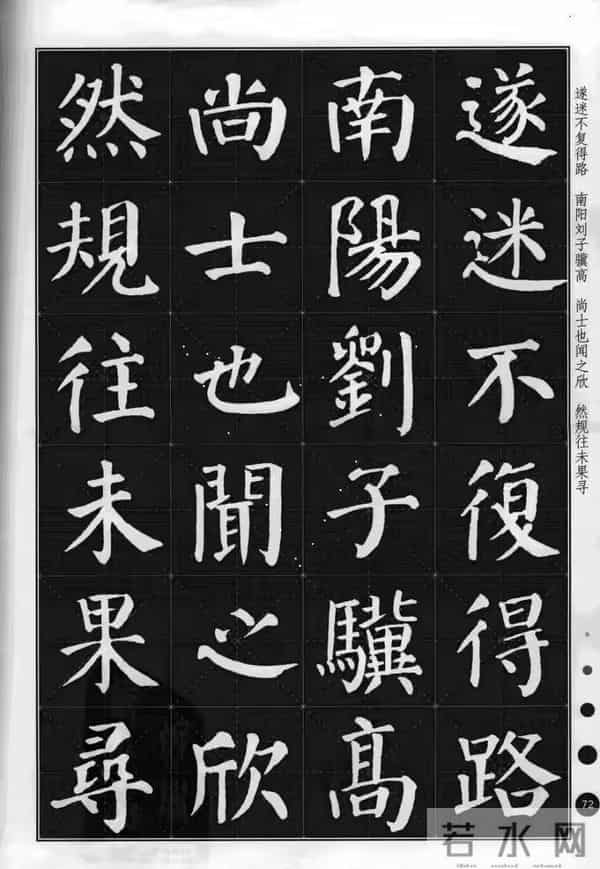 遂迷不復得路
南陽劉子驥高
尚士也聞之欣
然規往未果尋
遂迷不复得路 南阳刘子骥高 尚士也闻之欣 然规往未果寻
72
若水网